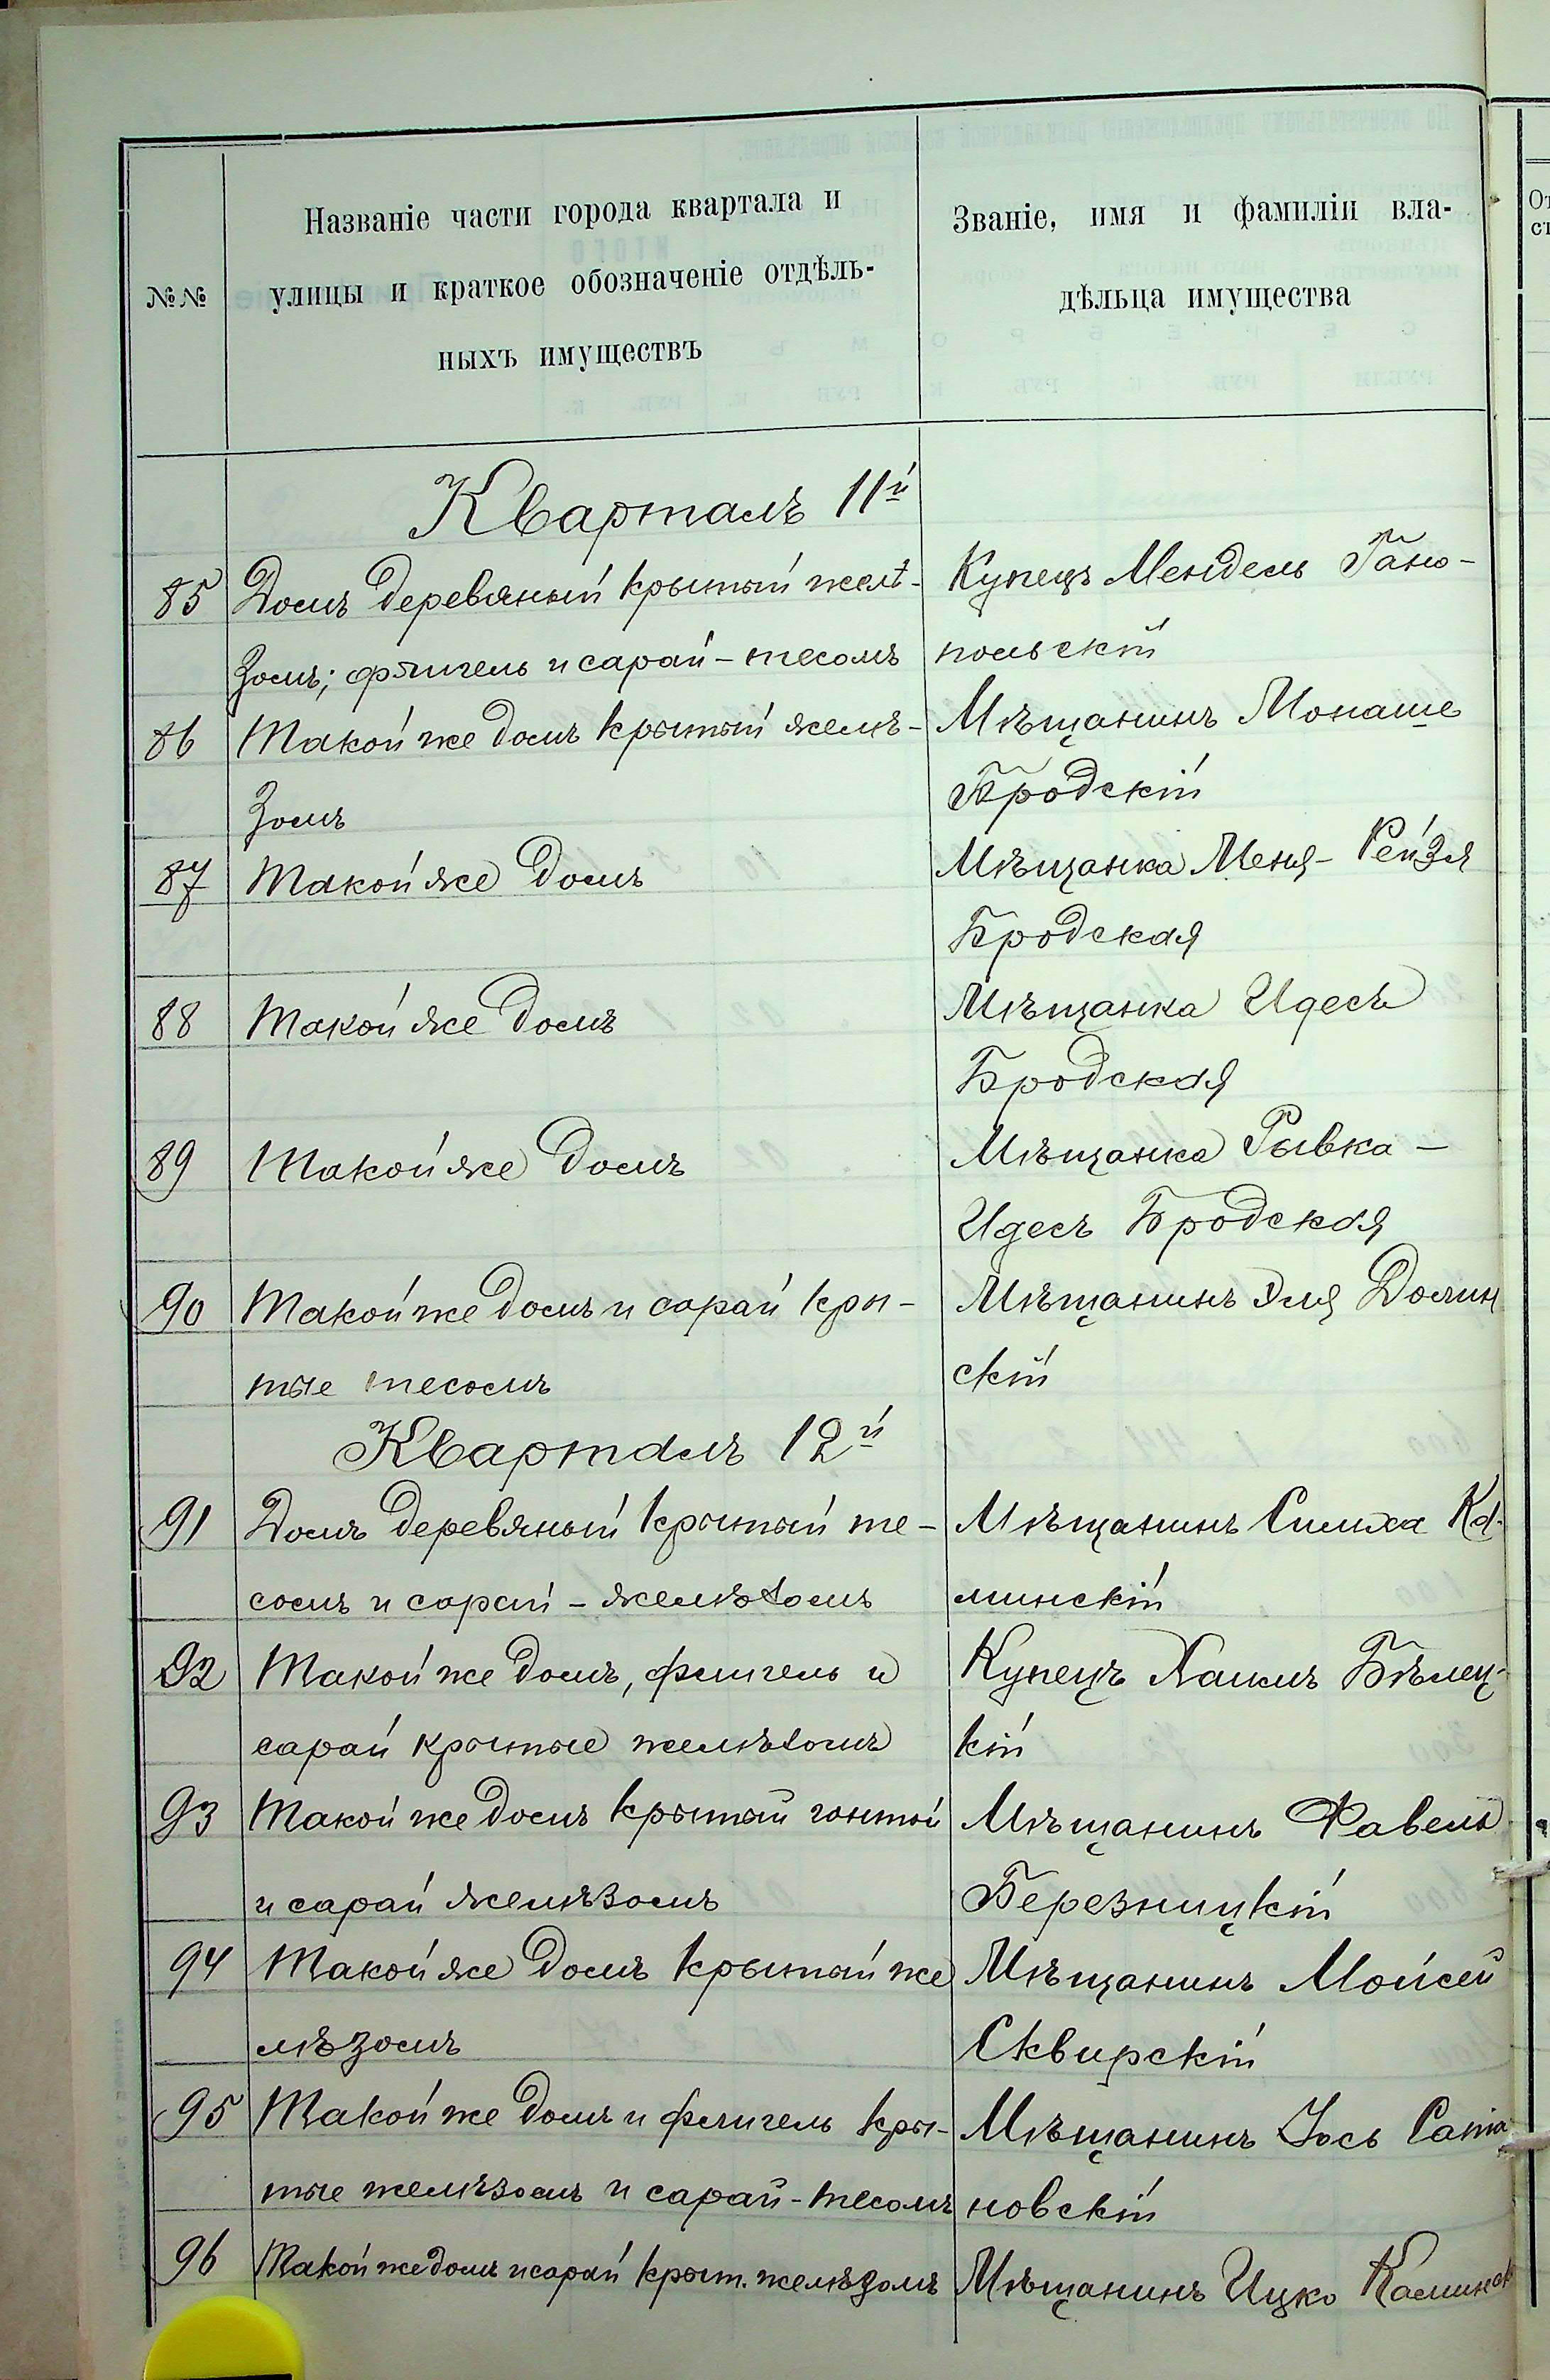 №№
Названіе части города квартала и
улицы и краткое обозначеніе отдѣль-
ныхъ имуществъ
Званіе, имя и фамиліи вла-
дѣльца имущества
Кварталъ 11й
85 Домъ деревяный крытый желѣ- Купецъ Мендель Гано-
зомъ; флигель и сарай - тесомъ польскій
86 Такой же домъ крытый желѣ- Мѣщанинъ Монаше
зомъ Бродскій
87 Такой же домъ Мѣщанка Меня-Рейзя
Бродская
88 Такой же домъ Мѣщанка Идесъ
Бродская
89 Такой же домъ Мѣщанка Рывка -
Идесъ Бродская
90 Такой же домъ и сарай кры- Мѣщанинъ Эля Долин
тые тесомъ скій
Кварталъ 12й
91 Домъ деревяный крытый те- Мѣщанинъ Симха Ка-
сомъ и сарай - желѣзомъ минскій
92 Такой же домъ, флигель и Купецъ Хаимъ Бѣлец-
сарай крытые желѣзомъ кій
93 Такой же домъ крытый гонтой Мѣщанинъ Фавель
и сарай желѣзомъ Березницкій
94 Такой же домъ крытый же Мѣщанинъ Мойсей
лѣзомъ Сквирскій
95 Такой же домъ и флигель кры- Мѣщанинъ Іось Сата
тые желѣзомъ и сарай - тесомъ новскій
96 Такой же домъ и сарай крыт. желѣзомъ Мѣщанинъ Ицко